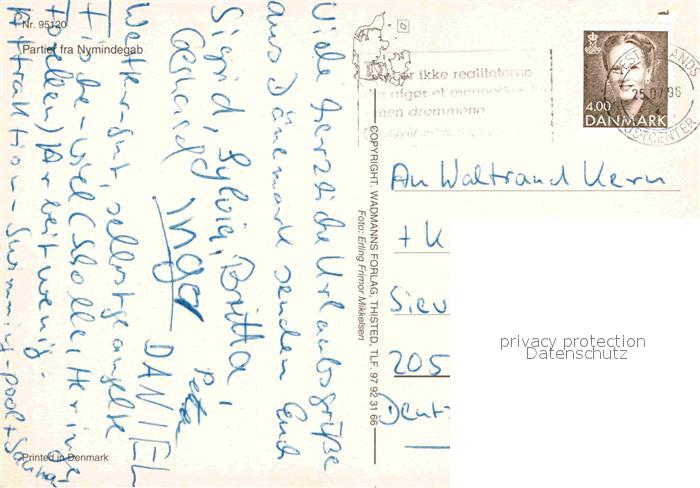 Nr. 95120
Partier fra Nymindegab
Viele herzliche Urlaubsgrüße
aus Dänemark senden Euch
Sigrid, Sylvia, Britta,
Gerhard Inga Peter DANIEL
Wetter - gut, selbstgeangelte
Fische - viel (Scholle, Heringe,
Forellen) Arbeit wenig.
Attraktion - Swimming-pool + Sauna
Printed in Denmark
COPYRIGHT: WADMANNS FORLAG, THISTED, TLF. 97 92 31 66
Foto: Erling Frimor Mikkelsen
er ikke realiteterne
der afgør et menneskes
men drømmene
25.07.96
POSTCENTER
4.00
DANMARK
An Waltraud Kern
+ K
Siev
205
Deuts
privacy protection
Datenschutz